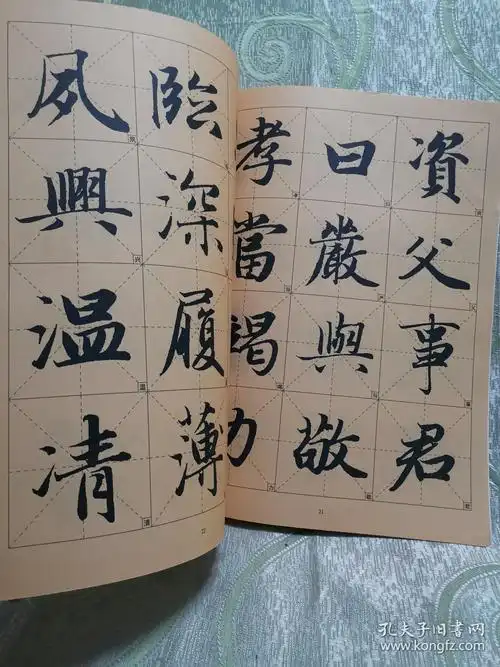 資父事君
曰嚴與敬
孝當竭力
21
臨深履薄
夙興温清
22
孔夫子旧书网
www.kongfz.com